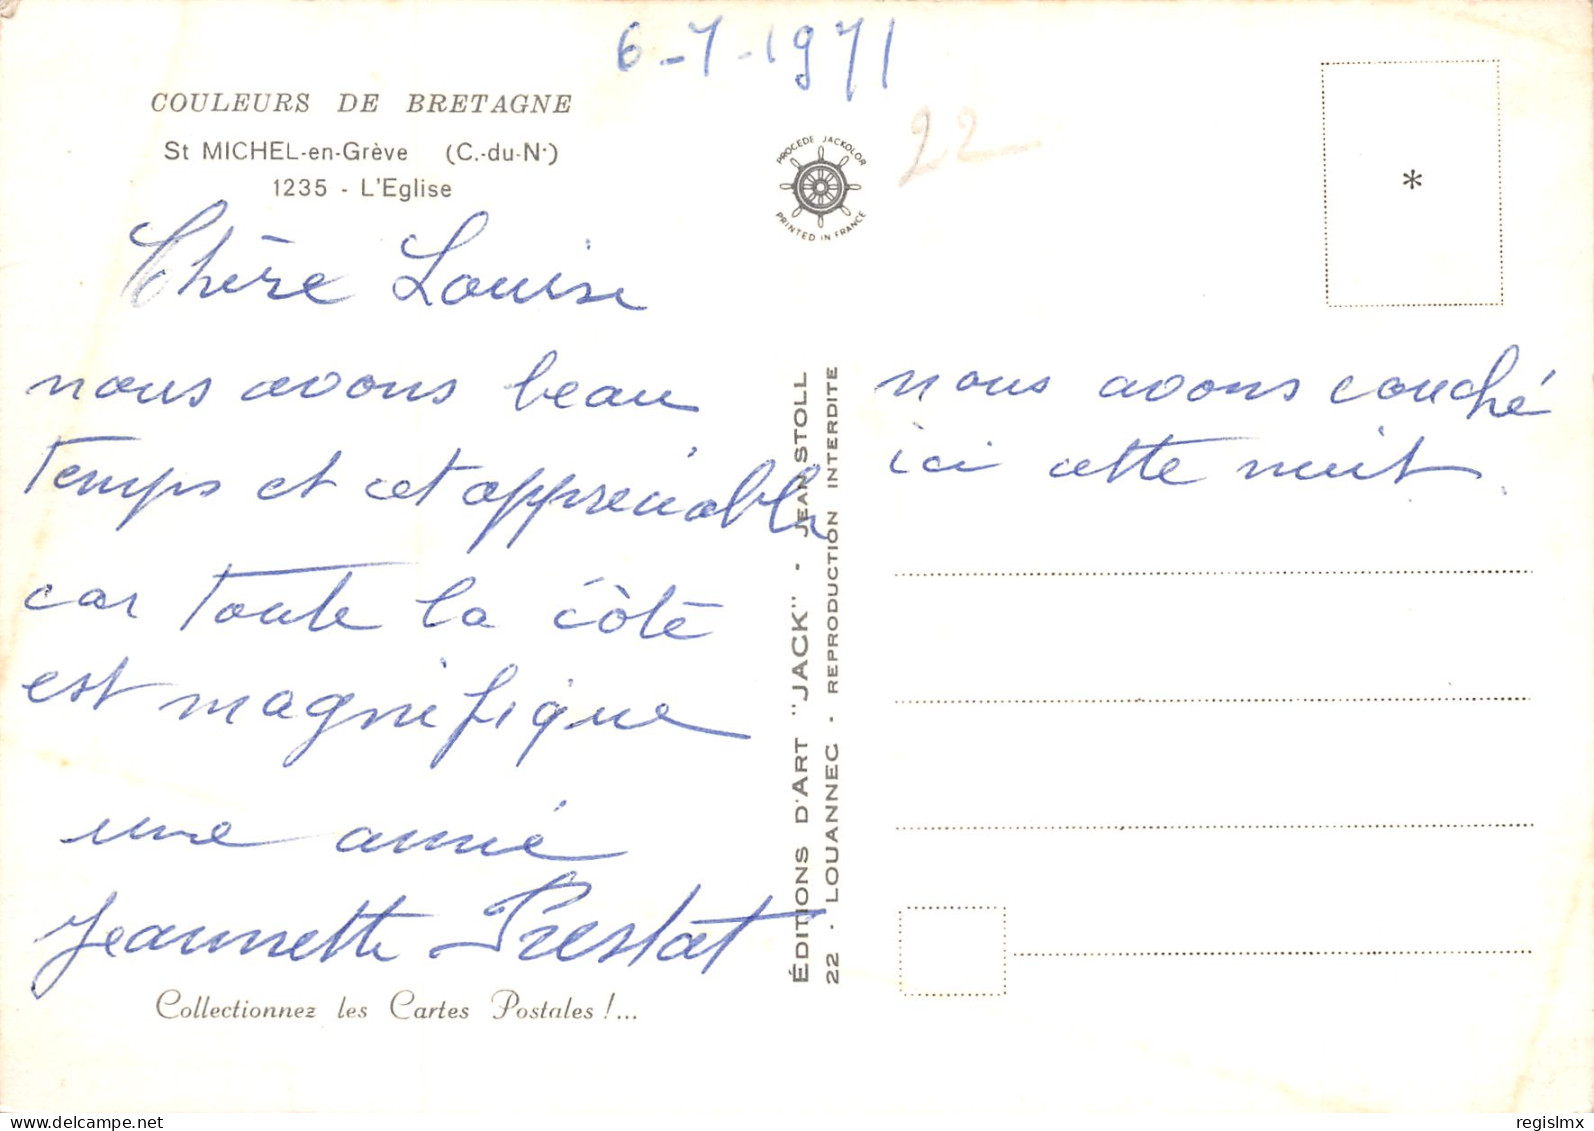 6-7-1971
22
COULEURS DE BRETAGNE
St MICHEL-en-Grève (C.-du-N.)
1235 - L'Eglise
PROCEDE JACKOLOR
PRINTED IN FRANCE
*
Chère Louise
nous avons beau
temps et cet appréciable
car toute la côte
est magnifique
une amie
Jeannette Prestat
Collectionnez les Cartes Postales !...
ÉDITIONS D'ART "JACK" - JEAN STOLL
22 - LOUANNEC - REPRODUCTION INTERDITE
nous avons couché
ici cette nuit.
regislmx